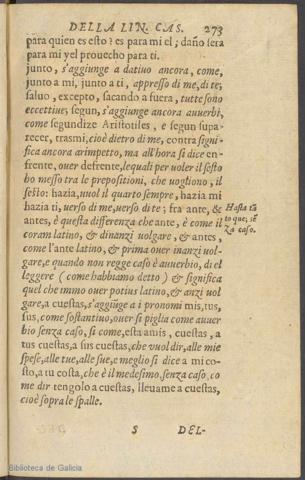 DELLA LIN. CAS. 273
para quien es esto? es para mi el; daño sera
para mi yel prouecho para ti.
junto, s'aggiunge a datiuo ancora, come,
junto a mi, junto a ti, appresso di me, di te;
saluo, excepto, sacando a fuera, tutte sono
eccettiue; segun, s'aggiunge ancora auuerbi,
come segundize Aristotiles, e segun supa-
recer, trasmi, cioè dietro di me, contra signi-
fica ancora arimpetto, ma all'hora si dice en
frente, ouer defrente, lequali per uoler il sesto
ho messo tra le prepositioni, che uogliono, il
sesto: hazia, uuol il quarto sempre, hazia mi
hazia ti, uerso di me, uerso di te; fra ante, &
antes, è questa differenza che ante, è come il
coram latino, & dinanzi uolgare, & antes,
come l'ante latino, & prima ouer inanzi uol-
gare, e quando non regge caso è auuerbio, di el
leggere (come habbiamo detto) & significa
quel che immo ouer potius latino, & anzi uol
gare, a cuestas, s'aggiunge a i pronomi mis, tus,
sus, come sostantiuo, ouer si piglia come auuer
bio senza caso, si come, esta amis, cuestas, a
tus cuestas, a sus cuestas, che vuol dir, alle mie
spese, alle tue, alle sue, e meglio si dice a mi co-
sto, a tu costa, che è il medesimo. senza caso, co
me dir tengolo a cuestas, lleuame a cuestas,
cioè sopra le spalle.
Hasta tã
to que, sẽ
za caso.
S DEL-
Biblioteca de Galicia